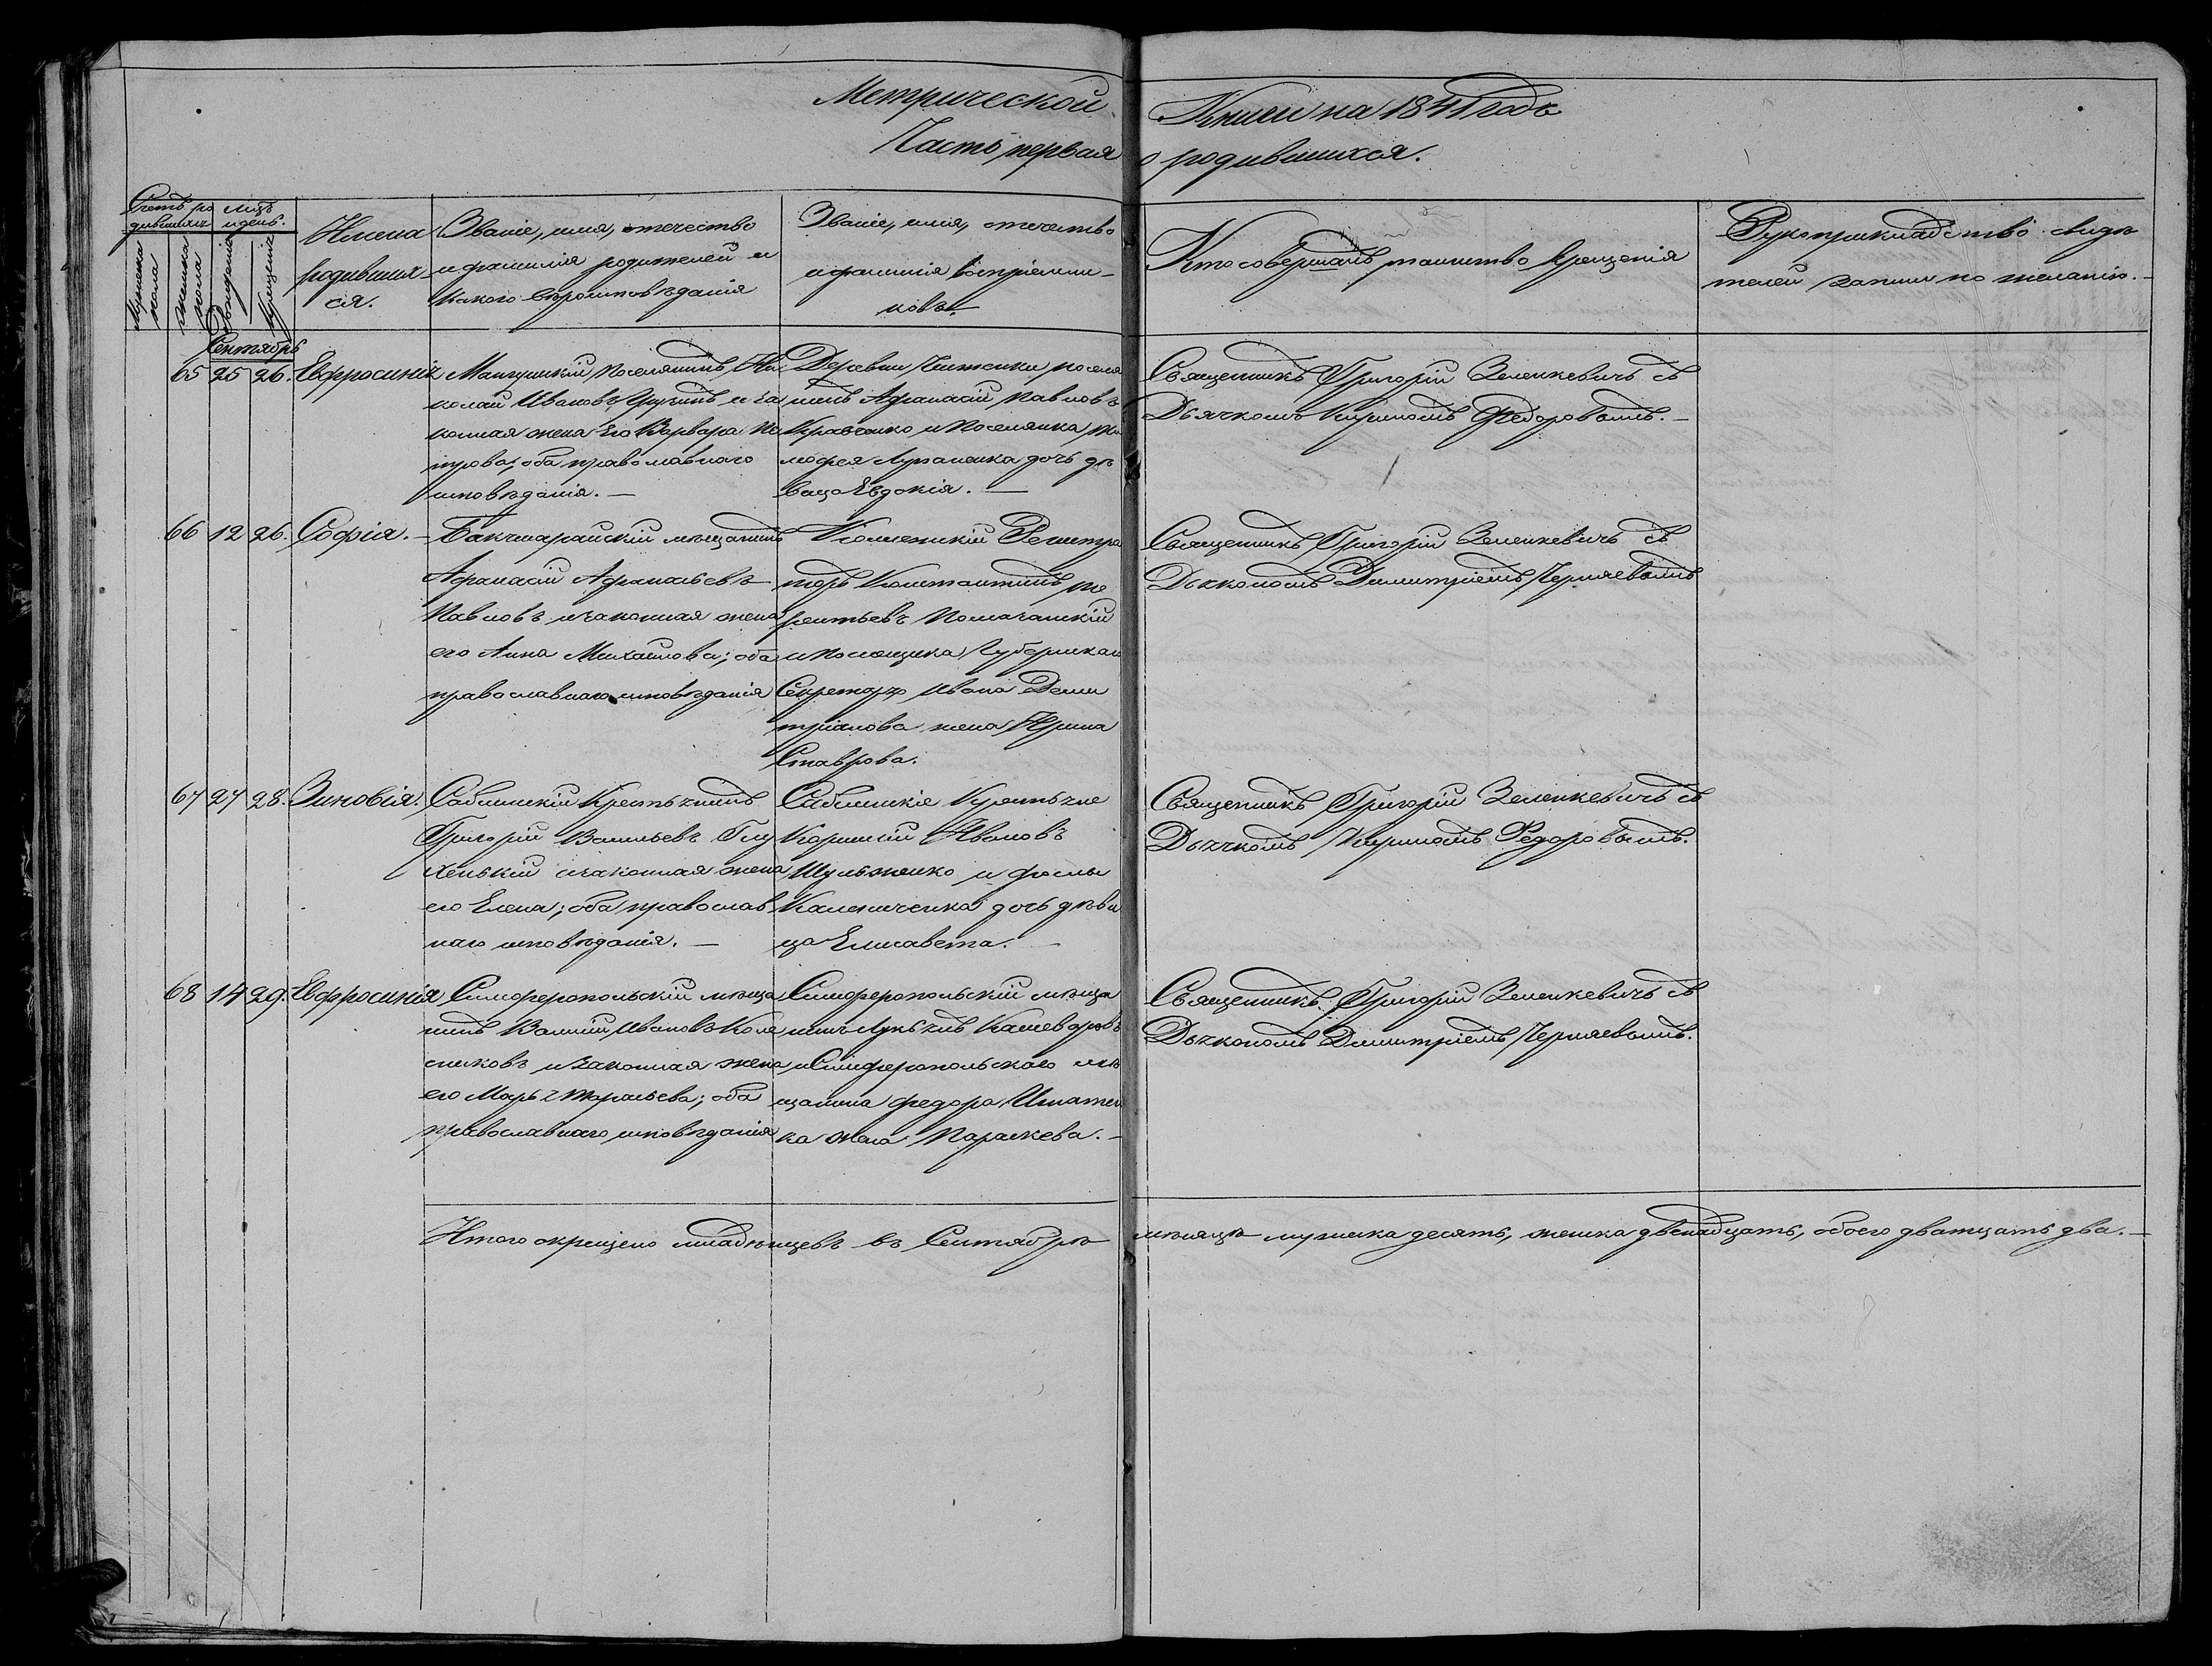 Метрической Книги на 1841 годъ
Часть первая о родившихся.
Счетъ ро
дившихъ
Мужеска
пола
Женска
пола
Мцъ
и день.
Рожденія
Крещенія
Имена
родивших
ся.
Званіе, имя, отечество
и фамилія родителей и
какого вѣроисповѣданія
Званіе, имя, отечество
и фамилія воспріемни-
ковъ.
Кто совершалъ таинство крещенія
Рукоприкладство свидѣ
телей записи по желанію.
Сентябрь
65 25 26. Евфросинія
Мангушкій поселянинъ, Ни
колай Ивановъ и за
конная жена его Варвара Пе
трова; оба православнаго
исповѣданія. —
Деревни поселя
нинъ Афанасій Павловъ
Кравченко и поселянка Ти
мофея дочь дѣ
вица Евдокія. —
Священникъ Григорій Зеленкевичъ съ
Дьячкомъ Кириломъ Федоровымъ. —
66 12 26. Софія. —
Бакчисарайскій мѣщанинъ
Афанасій Афанасьевъ
Павловъ и законная жена
его Анна Михайлова; оба
православнаго исповѣданія
Коллежскій Регистра
торъ Константинъ Те
рентьевъ
и помощика Губернскаго
Секретаря Ивана Деми
тріянова жена Ирина
Ставрова.
Священникъ Григорій Зеленкевичъ съ
Дьякономъ Димитріемъ Черняевымъ
67 27 28. Зиновія.
Саблинскій Крестьянинъ
Григорій Васильевъ Глу
хенькій и законная жена
его Елена; оба православ
наго исповѣданія. —
Саблинскіе Крестьяне
Корнилій Ивановъ
Шульженко и Фомы
Калениченка дочь дѣви
ца Елисавета. —
Священникъ Григорій Зеленкевичъ съ
Дьячкомъ Кириломъ Федоровымъ.
68 14 29. Евфросинія
Симферопольскій мѣща
нинъ Василій Ивановъ Коле
сниковъ и законная жена
его Марья Тарасьева; оба
православнаго исповѣданія
Симферопольскій мѣща
нинъ Лукьянъ
и Симферопольскаго мѣ
щанина Федора Игнатен
ка жена Параскева. —
Священникъ Григорій Зеленкевичъ съ
Дьякономъ Димитріемъ Черняевымъ.
Итого окрещено младенцевъ въ Сентябрѣ мѣсяцѣ мужеска десять, женска двенадцать, обоего дватцать два. —